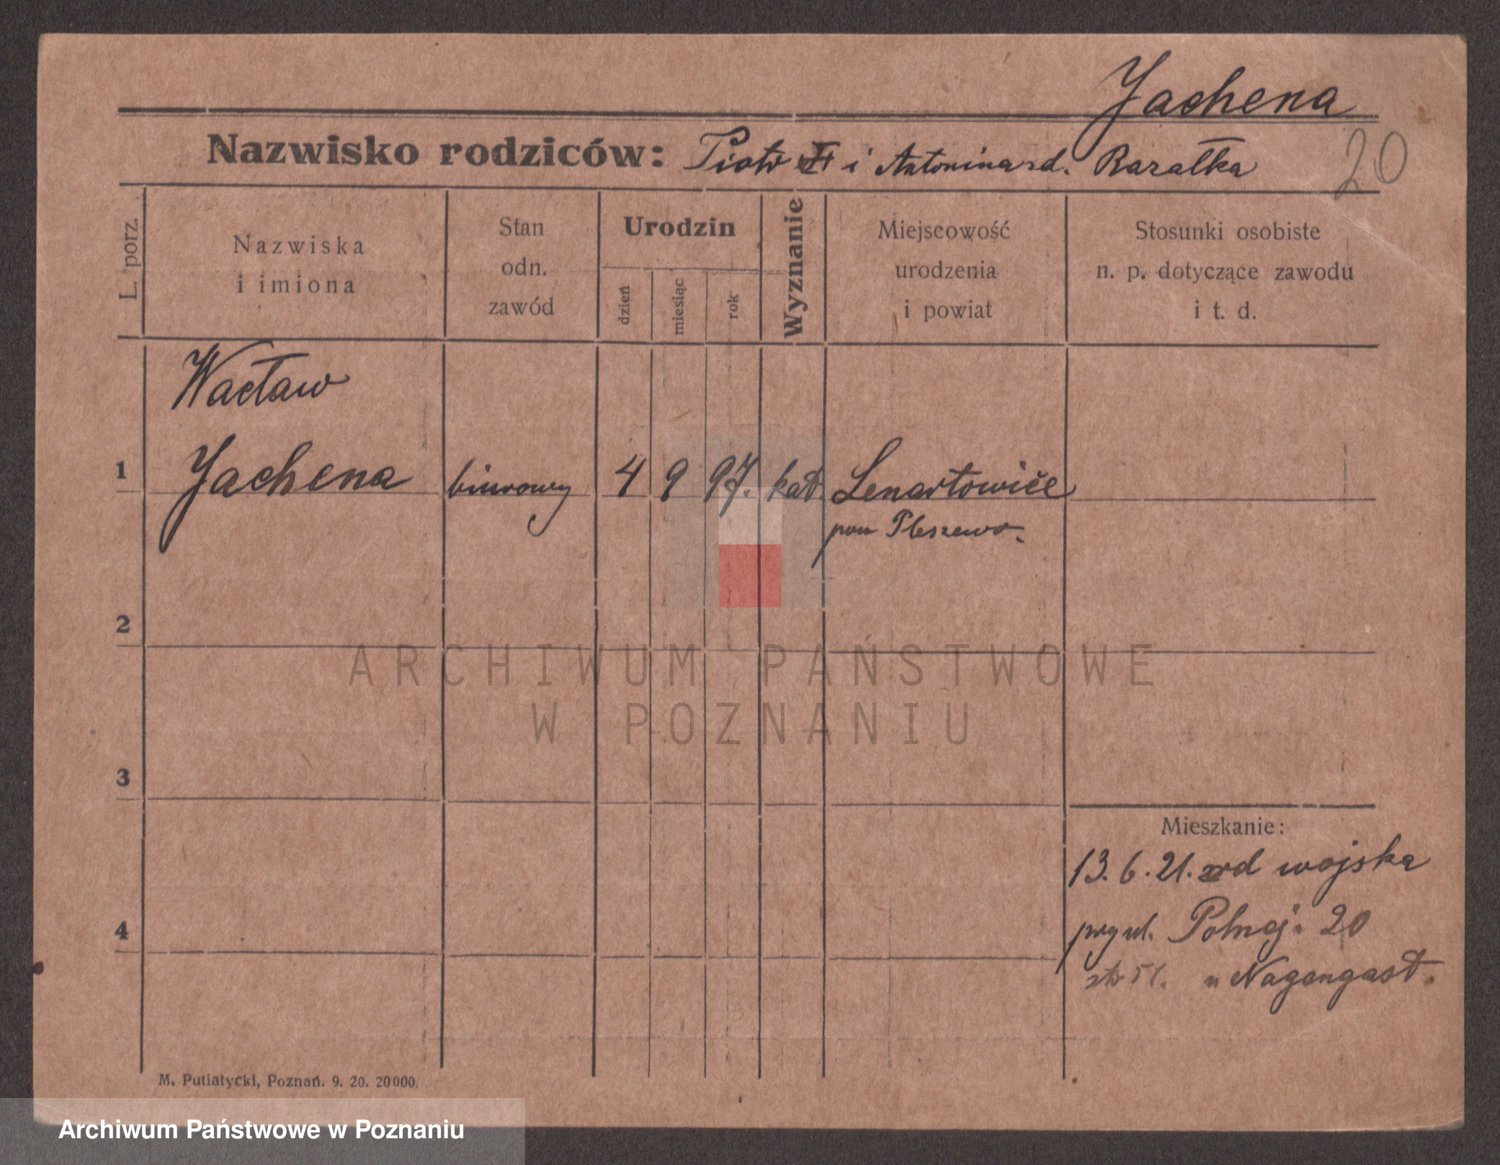 Jachena
Nazwisko rodziców: Piotr i Antonina rd. Rarałka
20
L. porz.
Nazwiska
i imiona
Stan
odn.
zawód
Urodzin
dzień
miesiąc
rok
Wyznanie
Miejscowość
urodzenia
i powiat
Stosunki osobiste
n. p. dotyczące zawodu
i t. d.
Wacław
1 Jachena biurowy 4 9 97. kat. Lenartowice
pow Pleszewo.
2
ARCHIWUM PAŃSTWOWE
W POZNANIU
3
Mieszkanie:
13. 6. 21. od wojska
4
przy ul. Polnej. 20
u Nagengast.
M. Putiatycki, Poznań. 9. 20. 20000.
Archiwum Państwowe w Poznaniu